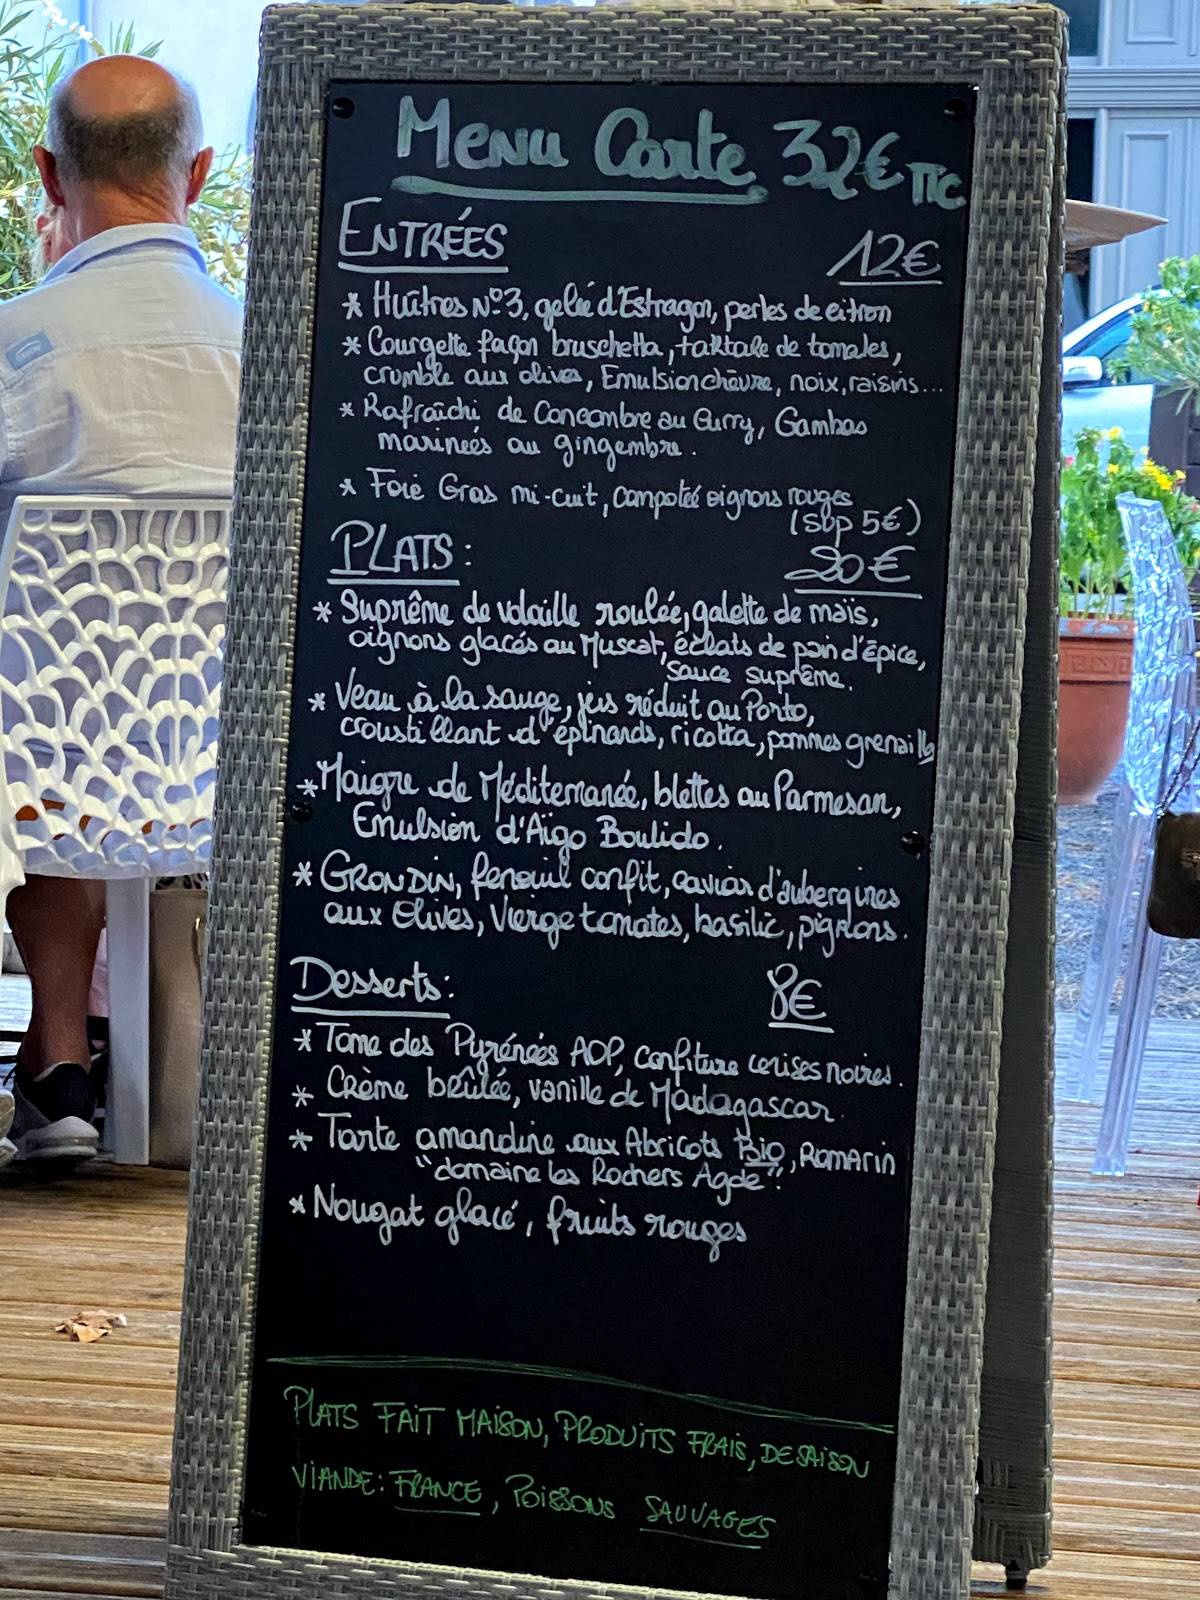 Menu Carte 32€ TTC
ENTRÉES 12€
* Huîtres N°3, gelée d'Estragon, perles de citron
* Courgette façon bruschetta, tartare de tomates,
crumble aux olives, Emulsion chèvre, noix, raisins...
* Rafraîchi de Concombre au Curry, Gambas
marinées au gingembre.
* Foie Gras mi-cuit, compotée oignons rouges
(sup 5€)
PLATS: 20€
* Suprême de volaille roulée, galette de maïs,
oignons glacés au Muscat, éclats de pain d'épice,
sauce suprême.
* Veau à la sauge, jus réduit au Porto,
croustillant d'épinards, ricotta, pommes grenailles
* Maigre de Méditerranée, blettes au Parmesan,
Emulsion d'Aïgo Boulido.
* GRONDIN, fenouil confit, caviar d'aubergines
aux Olives, Vierge tomates, basilic, pignons.
Desserts: 8€
* Tome des Pyrénées AOP, confiture cerises noires.
* Crème brûlée, vanille de Madagascar.
* Tarte amandine aux Abricots Bio, ROMARIN
"domaine les Rochers Agde".
* Nougat glacé, fruits rouges
PLATS FAIT MAISON, PRODUITS FRAIS, DE SAISON
VIANDE: FRANCE, POISSONS SAUVAGES